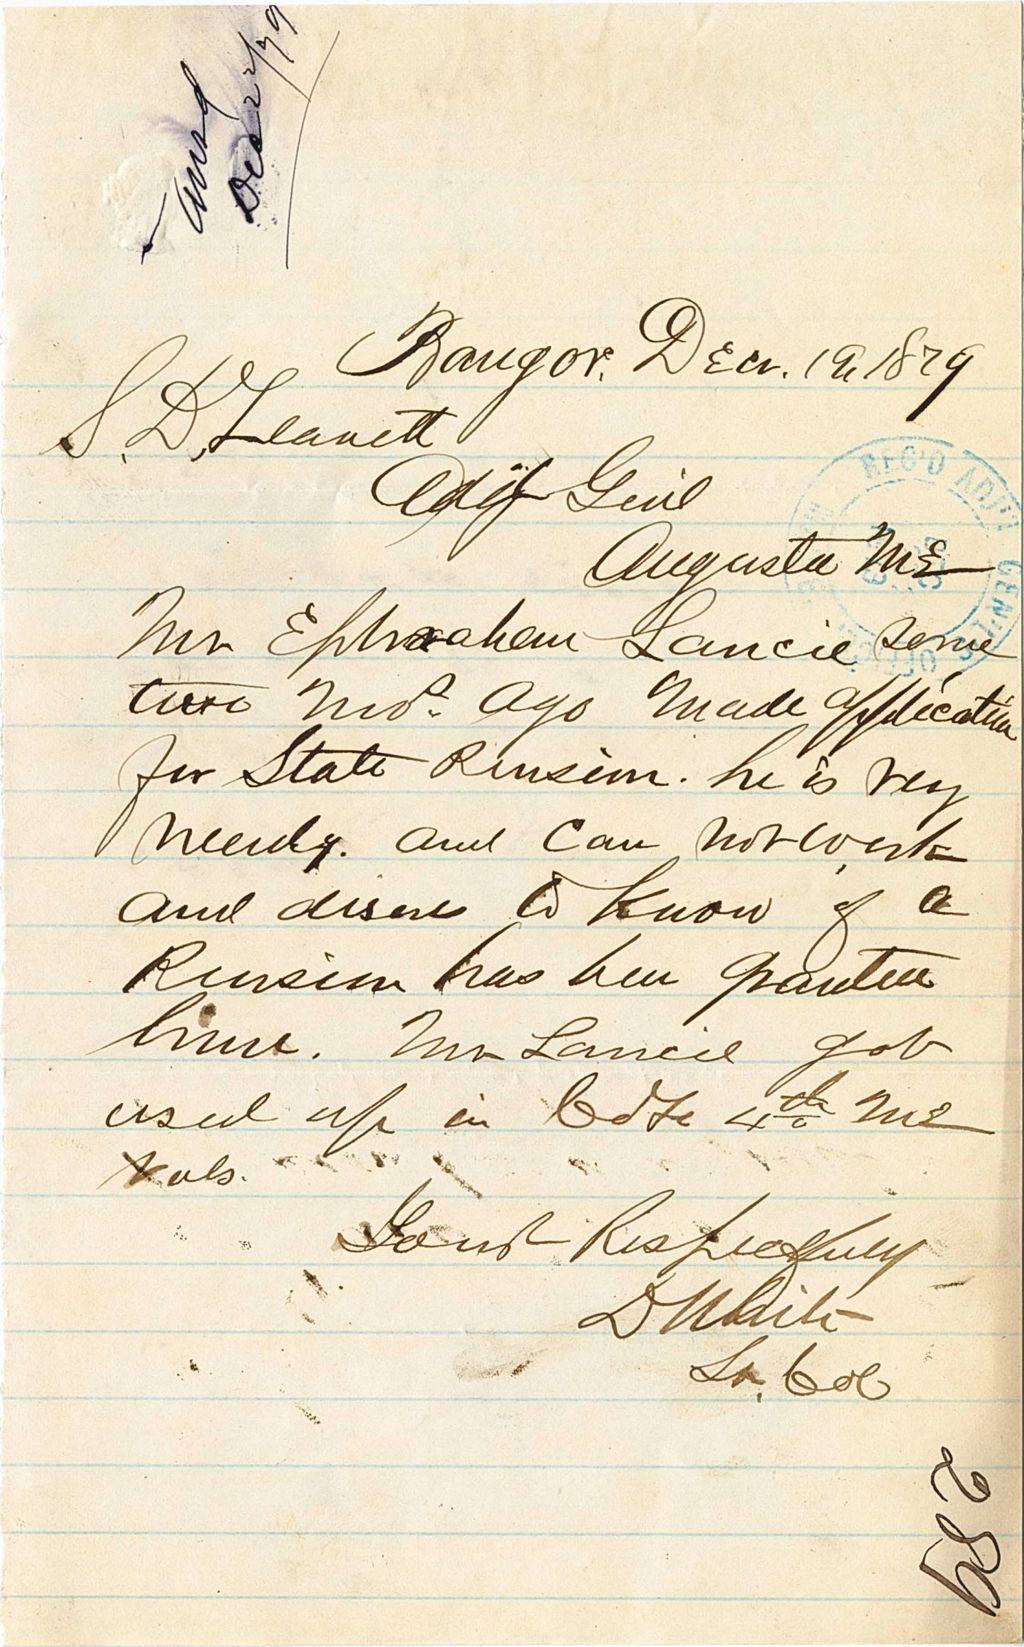 Ansd
Dec 22/79
Bangor. Decr. 19, 1879
S. D. Leavett
Adjt Genl
Augusta ME
Mr Ephraham Lancie some
two Mos. Ago Made application
for State Pension. he is very
Needy. and Can Not work
and desires to Know if a
Pension has ben granted
him. Mr Lancie got
used up in Co 4th ME
Vols.
Yours Respectfully
D White
Lt. Col
REC'D ADJ'T GEN'L'S OFFICE
289